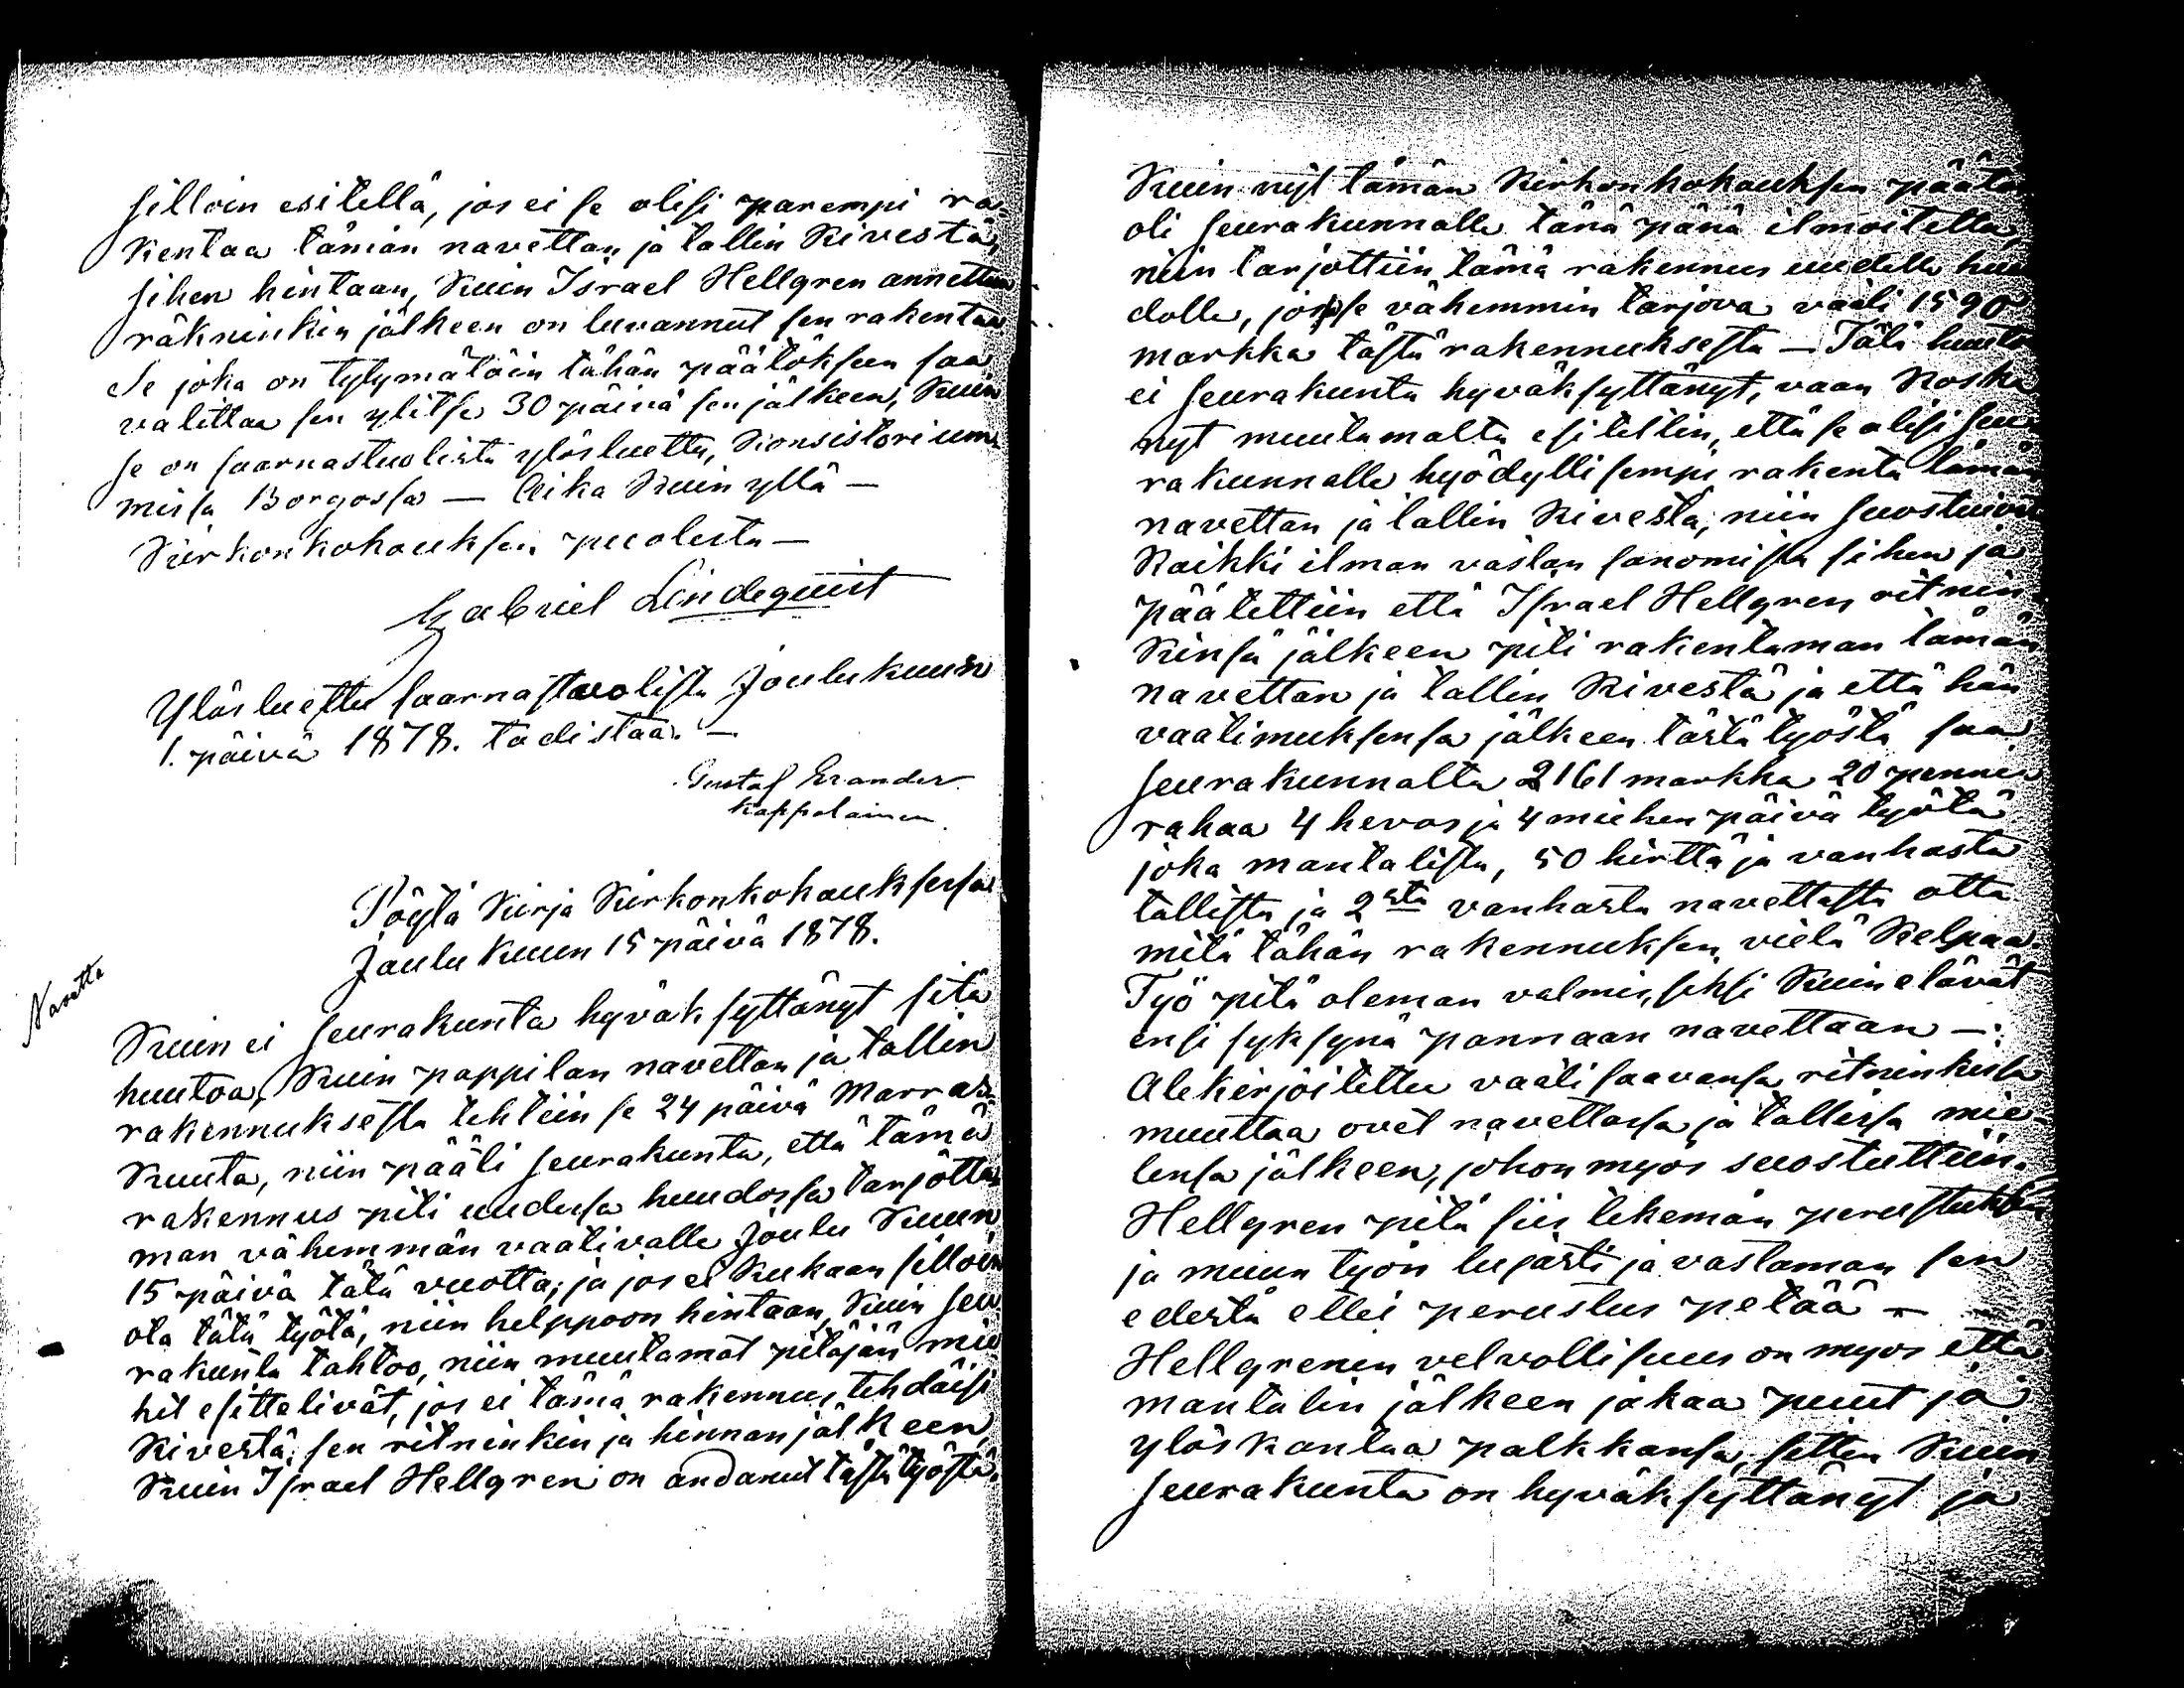 silloin esitellä, jos ei se olisi parempi ra-
kentaa tämän navettan ja tallin Kivestä,
sihen hintaan, Kuin Israel Hellgren annettun
räkninkin jälkeen on luvannut sen rakentaa
Se joka on tytymätöin tähän päätöksen saa
valittaa sen ylitse 30 päivä sen jälkeen, Kuin
se on saarnastuolista ylösluettu, Konsistorium
missa Borgossa — Aika Kuin yllä —
Kirkonkokouksen puolesta —
Gabriel Lindequist
Ylösluettu saarnastuolista Joulukuun
1. päivä 1878. todistaa. —
Gustaf Erander
Kappalainen.
Pöytä Kirja Kirkonkokouksessa
Joulu Kuun 15 päivä 1878.
Navetta
Kuin ei seurakunta hyväksyttänyt sitä
huutoa, Kuin pappilan navettan ja tallin
rakennuksesta tehtiin se 24 päivä Marras-
Kuuta, niin pääti seurakunta, että tämä
rakennus piti uudessa huudossa tarjotta-
man vähemmän vaativalle Joulu Kuun
15 päivä tätä vuotta; ja jos ei Kukaan silloin
ota tätä työtä, niin helppoon hintaan, Kuin seu-
rakunta tahtoo, niin muutamat pitäjän mie
hit esittelivät, jos ei tämä rakennus tehdäisi
Kivestä, sen ritninkin ja hinnan jälkeen,
Kuin Israel Hellgren on andanut tästä työstä.
Kuin nyt tämän Kirkonkokouksen päätös
oli seurakunnalle tänä pänä ilmoitettu,
niin tarjottiin tämä rakennus uudella huu
dolla, jossa vähemmin tarjova vaati 1590
markka tästä rakennuksesta — Tätä huuto
ei seurakunta hyväksyttänyt, vaan Koska
nyt muutamalta esitettiin, että se olisi seu-
rakunnalle hyödyllisempi rakenta tämän
navettan ja tallin Kivestä; niin suostuivat
Kaikki ilman vastan sanomista sihen ja
päätettiin että Israel Hellgren ritnin-
Kinsä jälkeen piti rakentaman tämän
navettan ja tallin Kivestä ja että hän
vaatimuksensa jälkeen tästä työstä saa
seurakunnalta 2161 markka 20 penniä
rahaa 4 hevos ja 4 miehen päivä työtä
joka mantalista, 50 hirttä ja vanhasta
tallista ja 2sta vanhasta navettasta otta
mitä tähän rakennuksen vielä Kelpaa.
Työ pitä oleman valmis, siksi Kuin elävät
ensi syksynä pannaan navettaan —
Alekirjoitettu vaati saavansa ritninkissä
muuttaa ovet navettassa ja tallissa mie-
lensä jälkeen, johon myös suostuttiin.
Hellgren pitä siis tekemän perustuksen
ja muun työn lujasti ja vastaman sen
edestä ettei perustus petää —
Hellgrenin velvollisuus on myös että
mantalin jälkeen jakaa puut ja
ylöskantaa palkkansa, sitten Kuin
seurakunta on hyväksyttänyt ja